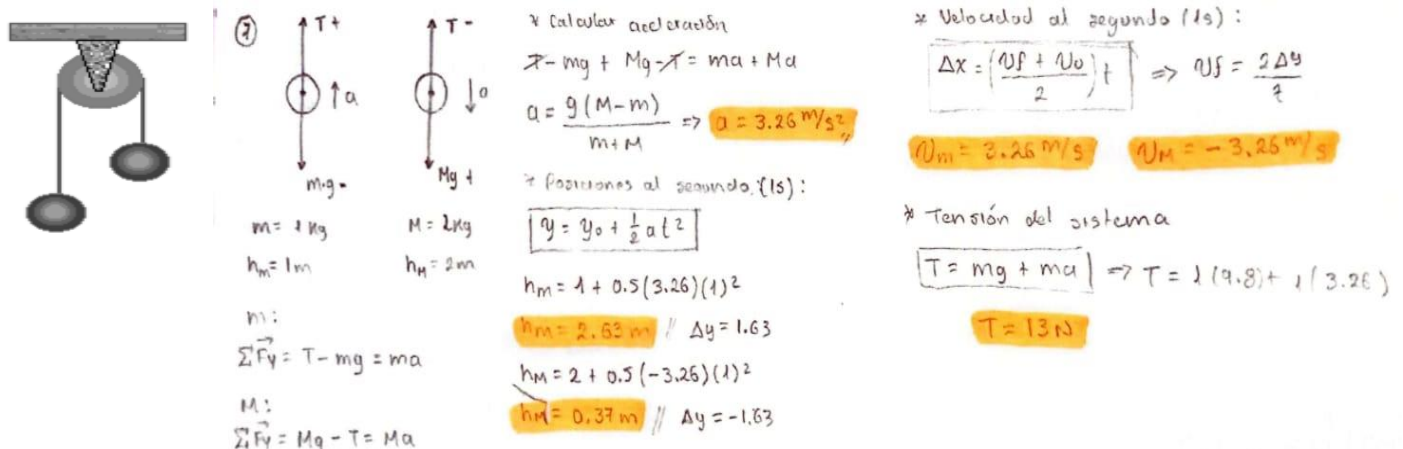 ②
T+
T-
a
a
m·g-
Mg+
m= 1 Kg
M= 2Kg
hm= 1m
hM= 2m
m:
ΣFy = T- mg = ma
M:
ΣFy = Mg - T = Ma
* Calcular aceleración
T- mg + Mg-T = ma + Ma
a = g(M-m) / m+M => a = 3.26 m/s²
* Posiciones al segundo (1s):
y = yo + 1/2 at²
hm = 1 + 0.5(3.26)(1)²
hm = 2.63 m // Δy = 1.63
hM = 2 + 0.5(-3.26)(1)²
hM = 0.37 m // Δy = -1.63
* Velocidad al segundo (1s):
Δx = (Vf + Vo / 2) t => Vf = 2Δy / t
Vm = 3.26 m/s
VM = - 3.26 m/s
* Tensión del sistema
T = mg + ma => T = 1(9.8) + 1(3.26)
T = 13 N